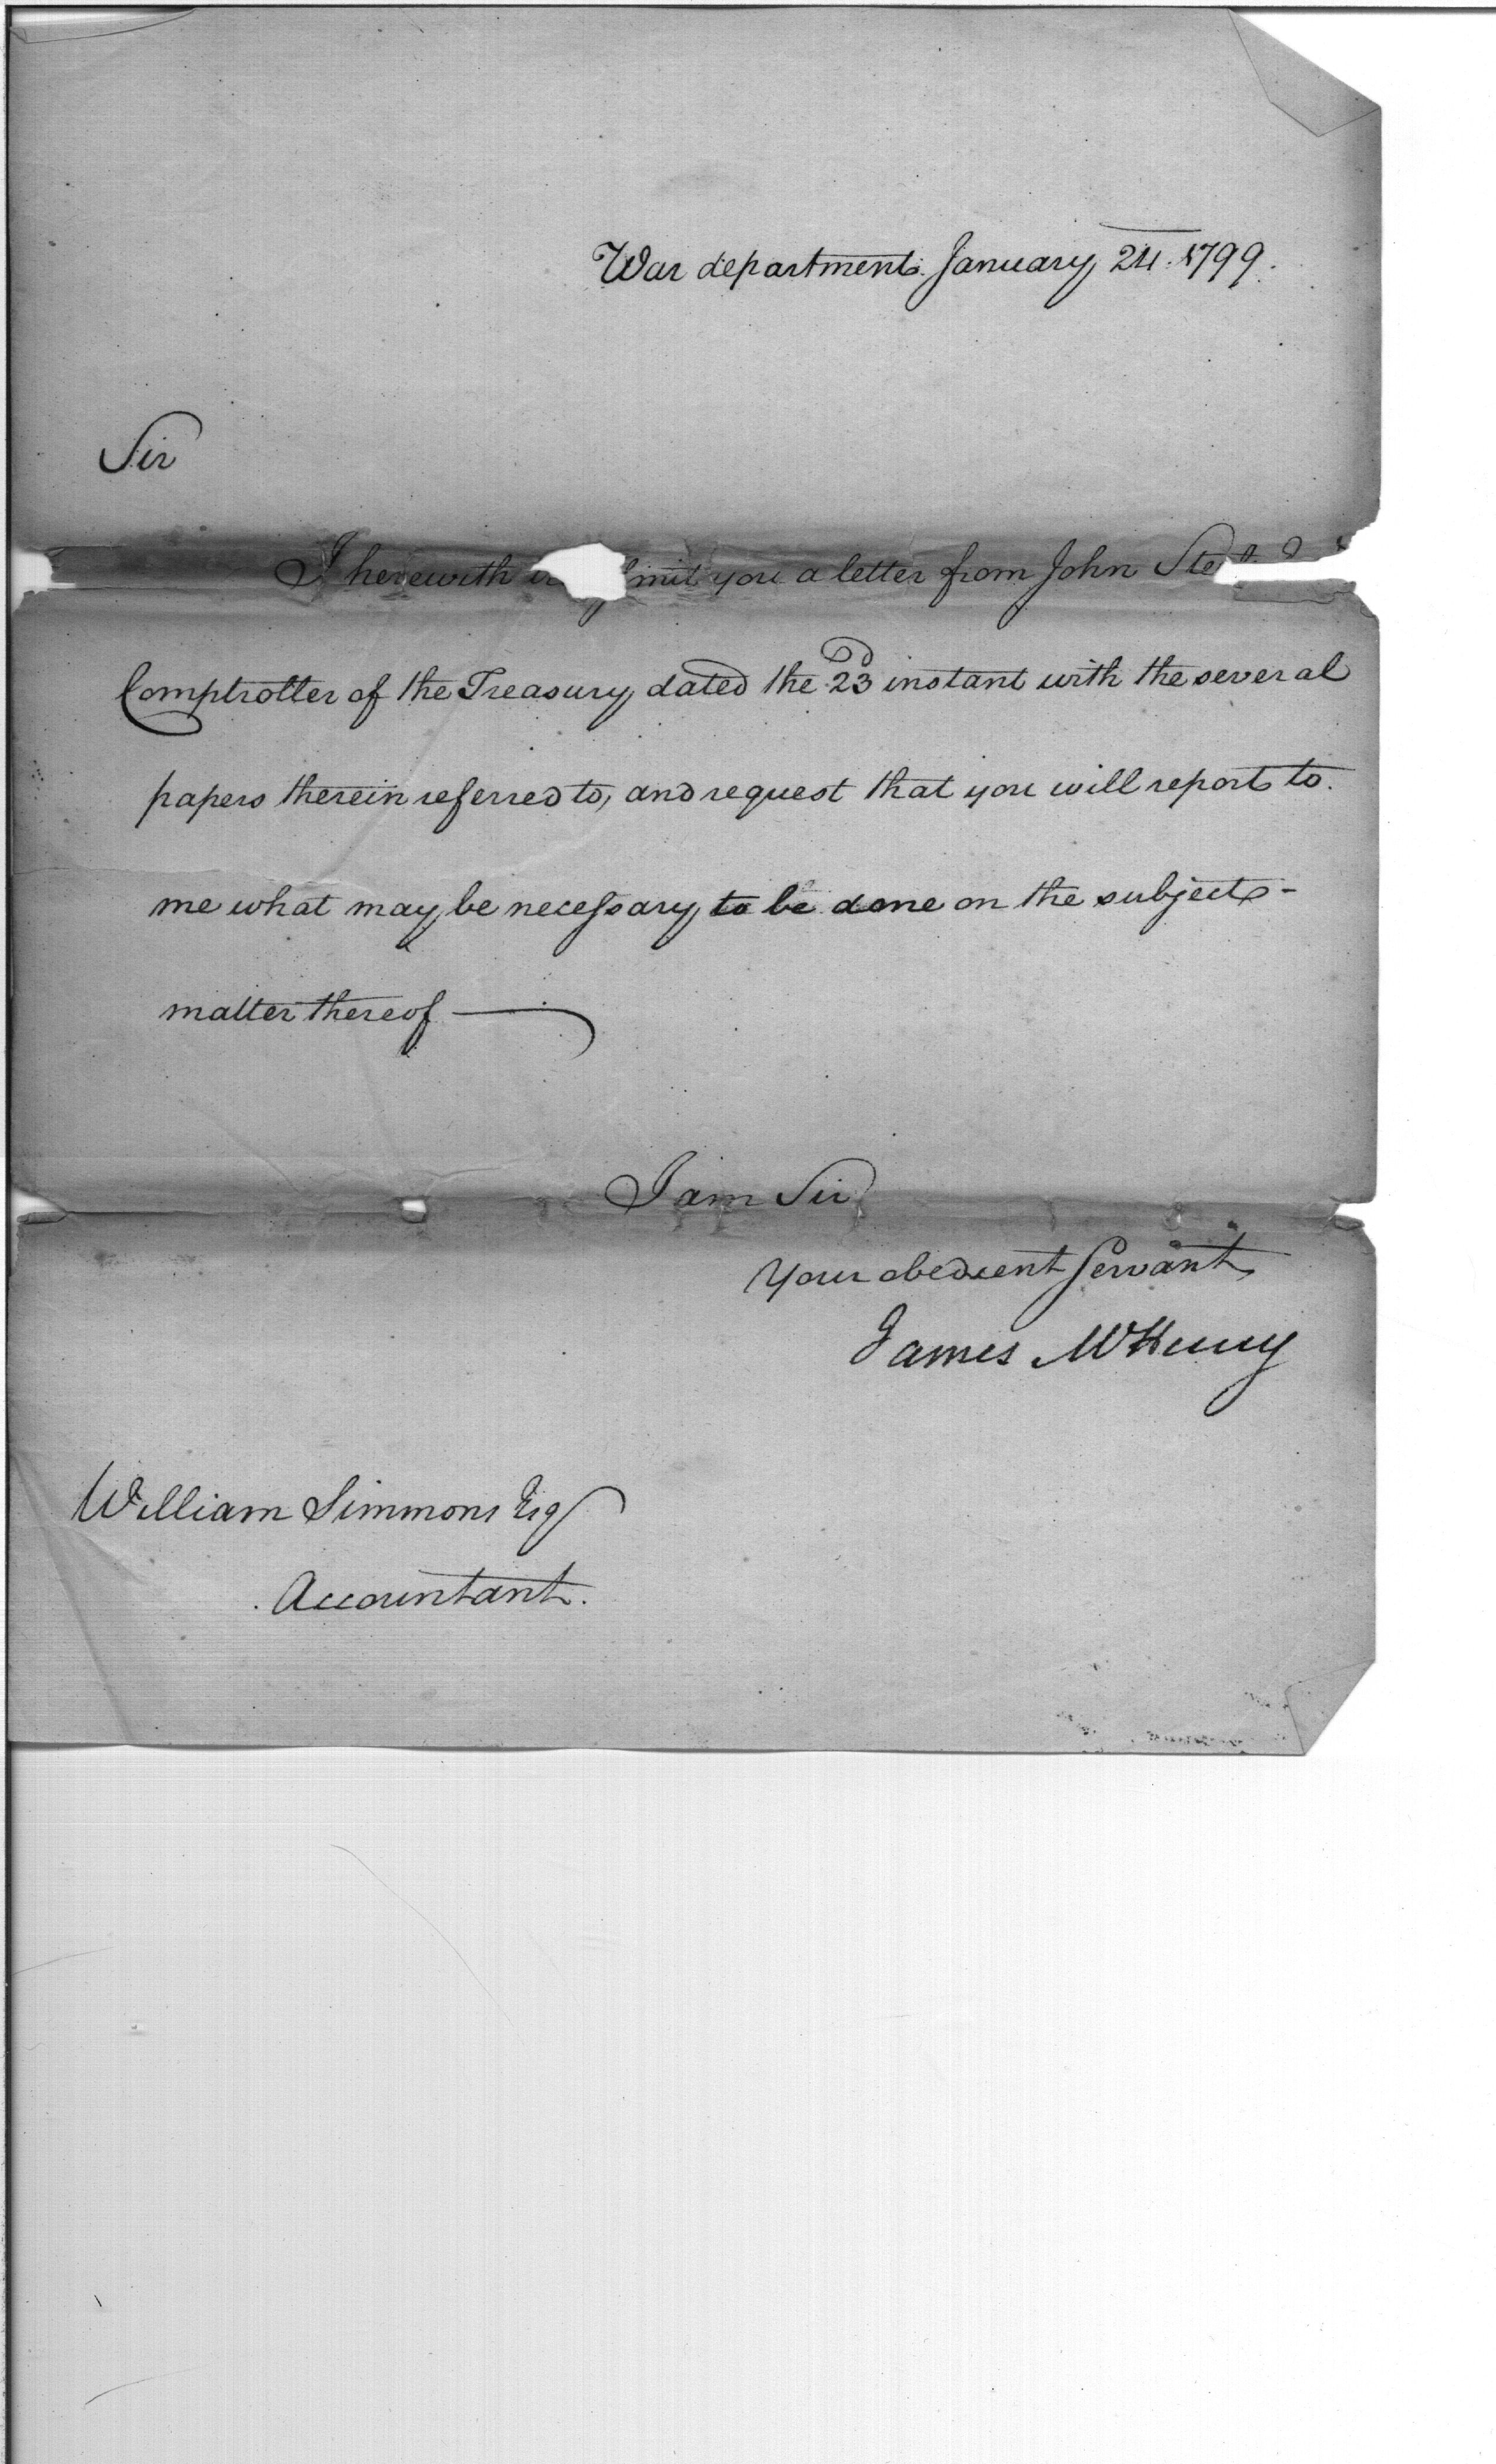 War department January 24. 1799.
Sir
I herewith you a letter from John
Comptroller of the Treasury dated the 23d instant with the several
papers therein referred to, and request that you will report to
me what may be necessary to be done on the subject-
matter thereof —
I am Sir
Your obedient Servant
James McHenry
William Simmons Esq
Accountant.